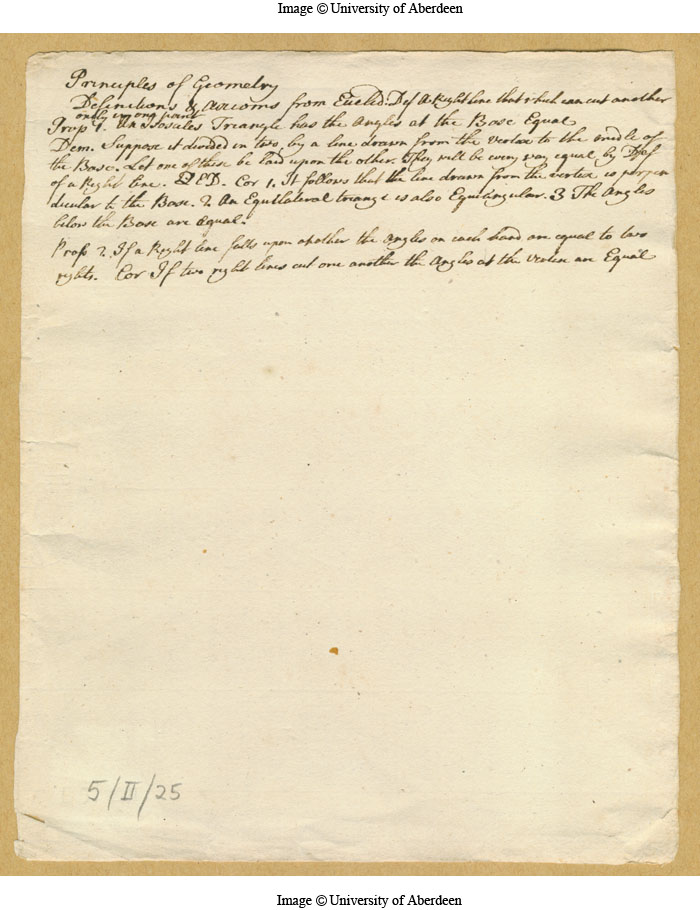 Image © University of Aberdeen
Principles of Geometry
Definitions & Axioms from Euclid. Def A Right line that which can cut another
only in one point
Prop 1. An Isosules Triangle has the Angles at the Base Equal
Dem. Suppose it divided in two, by a line drawn from the vertex to the midle of
the Base. Let one of these be laid upon the other. They will be every way equal by Def
of a Right line. QED. Cor 1. It follows that the line drawn from the vertex is perpen
dicular to the Base. 2 An Equilateral triangle is also Equiangular. 3 The Angles
below the Base are Equal.
Prop 2. If a Right line falls upon another the Angles on each hand are equal to two
rights. Cor If two right lines cut one another the Angles at the vertex are Equal
5/II/25
Image © University of Aberdeen